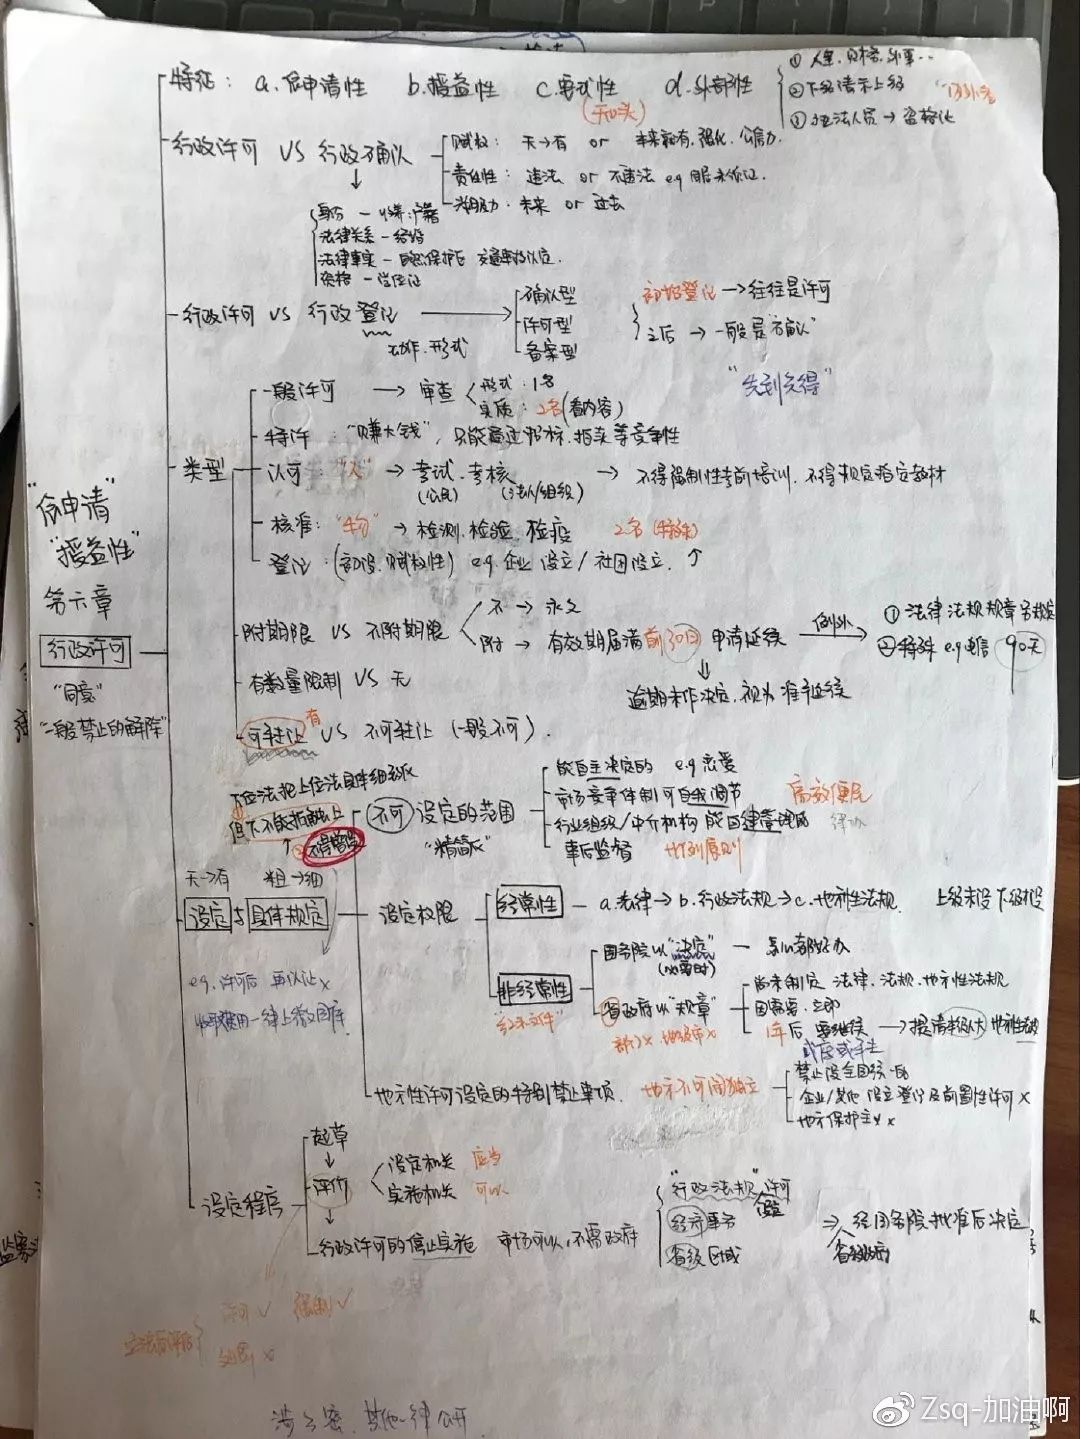 特征：a.依申请性 b.授益性 c.要式性 d.外部性
①人事、财格、外事…
②下级请示上级
③执法人员→资格证
"除外"
行政许可 VS 行政确认
赋权：无→有 or 本来就有,强化、公信力.
责任性：违法 or 不违法 e.g
效力：未来 or 过去
身份
法律关系－结婚
法律事实－ 交通事故认定.
资格
行政许可 VS 行政登记
动作.形式
确认型
许可型
备案型
初始登记→往往是许可
之后→一般是"确认"
"先到先得"
"依申请"
"授益性"
第六章
行政许可
"同意"
"一般禁止的解除"
类型
一般许可→审查
形式：1名
实质：2名(看内容)
特许："赚大钱"，只能通过招标、拍卖等竞争性
认可："人"→考试、考核→不得强制性考前培训、不得规定指定教材
(公民) (法人/组织)
核准："物"→检测、检验、检疫 2名(特殊)
登记：(初设、赋权性) e.g.企业设立/社团设立.
附期限 VS 不附期限
不→永久
附→有效期届满前30日 申请延续→例外
①法律法规规章另规定
②特殊 e.g 电信 90天
逾期未作决定,视为准予延续
有数量限制 VS 无
可转让 有 VS 不可转让(一般不可).
下位法把上位法具体细致化
但下不能抵触上
不得增设
无→有 粗→细
设定与具体规定
e.g.许可后 再认证×
收取费用一律上缴国库
不可 设定的范围
"精简"
能自主决定的 e.g 恋爱
市场竞争体制可自我调节
行业组织/中介机构 能自律管理的
事后监督 比例原则
高效便民
设定权限
经常性－a.法律→b.行政法规→c.地方性法规. 上级未设下级才设
非经常性
"红头文件"
国务院以"决定"
(必要时)
省政府以"规章"
部门× 地级市×
尚未制定 法律、法规、地方性法规
因需要 立即
1年后 要继续→提请本级人大 地方性法规
地方性许可设定的特别禁止事项. 地方不可闹独立
禁止设全国统一的
企业/其他 设立登记及前置性许可×
地方保护主义×
设定程序
起草
↓
评价
设定机关 应当
实施机关 可以
↓
行政许可的停止实施 市场可以,不需政府
"行政法规"许可
经济事务
省级区域
⇒经国务院批准后决定
省级政府
立法后评估
许可√ 强制√
处罚×
涉 密,其他一律公开
Zsq-加油啊